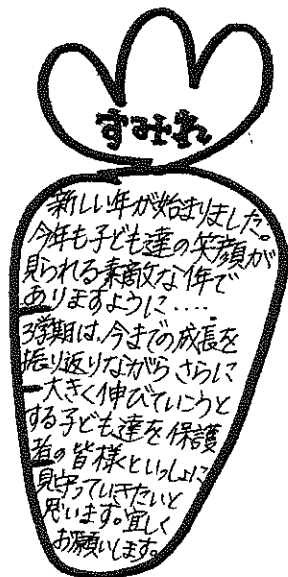 すみれ
新しい年が始まりました。
今年も子ども達の笑顔が
見られる素敵な年で
ありますように‥‥
3学期は、今までの成長を
振り返りながら さらに
大きく伸びていこうと
する子ども達を保護
者の皆様といっしょに
見守っていきたいと
思います。宜しく
お願いします。